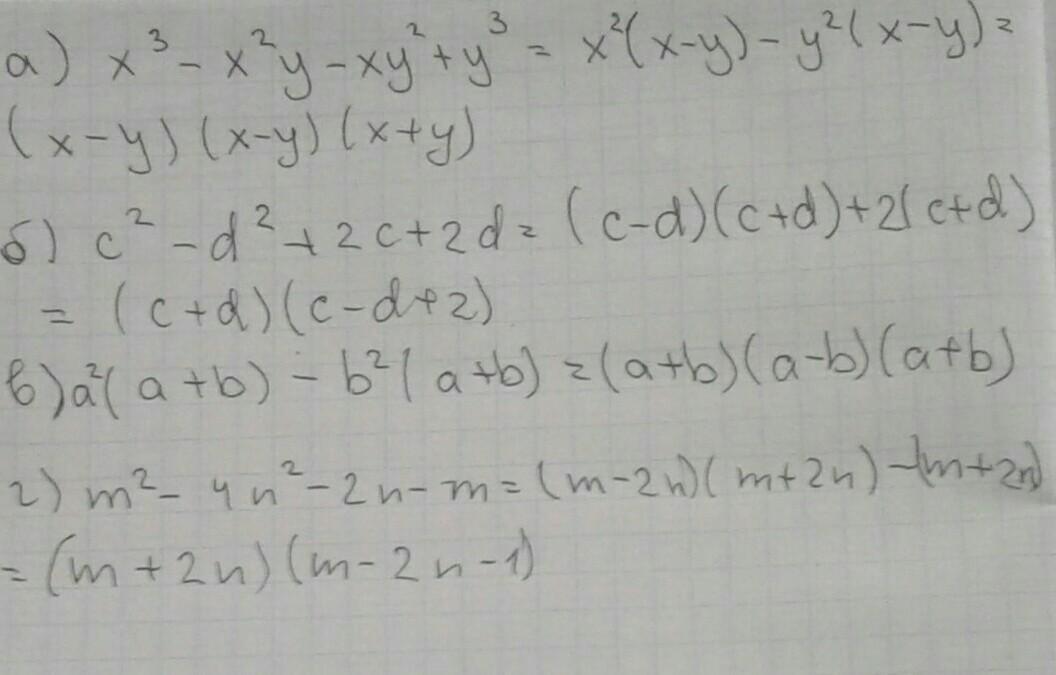 а) x³ - x²y - xy² + y³ = x²(x-y) - y²(x-y) =
(x-y)(x-y)(x+y)
б) c² - d² + 2c + 2d = (c-d)(c+d) + 2(c+d)
= (c+d)(c-d+2)
в) a²(a+b) - b²(a+b) = (a+b)(a-b)(a+b)
г) m² - 4n² - 2n - m = (m-2n)(m+2n) - (m+2n)
= (m+2n)(m-2n-1)